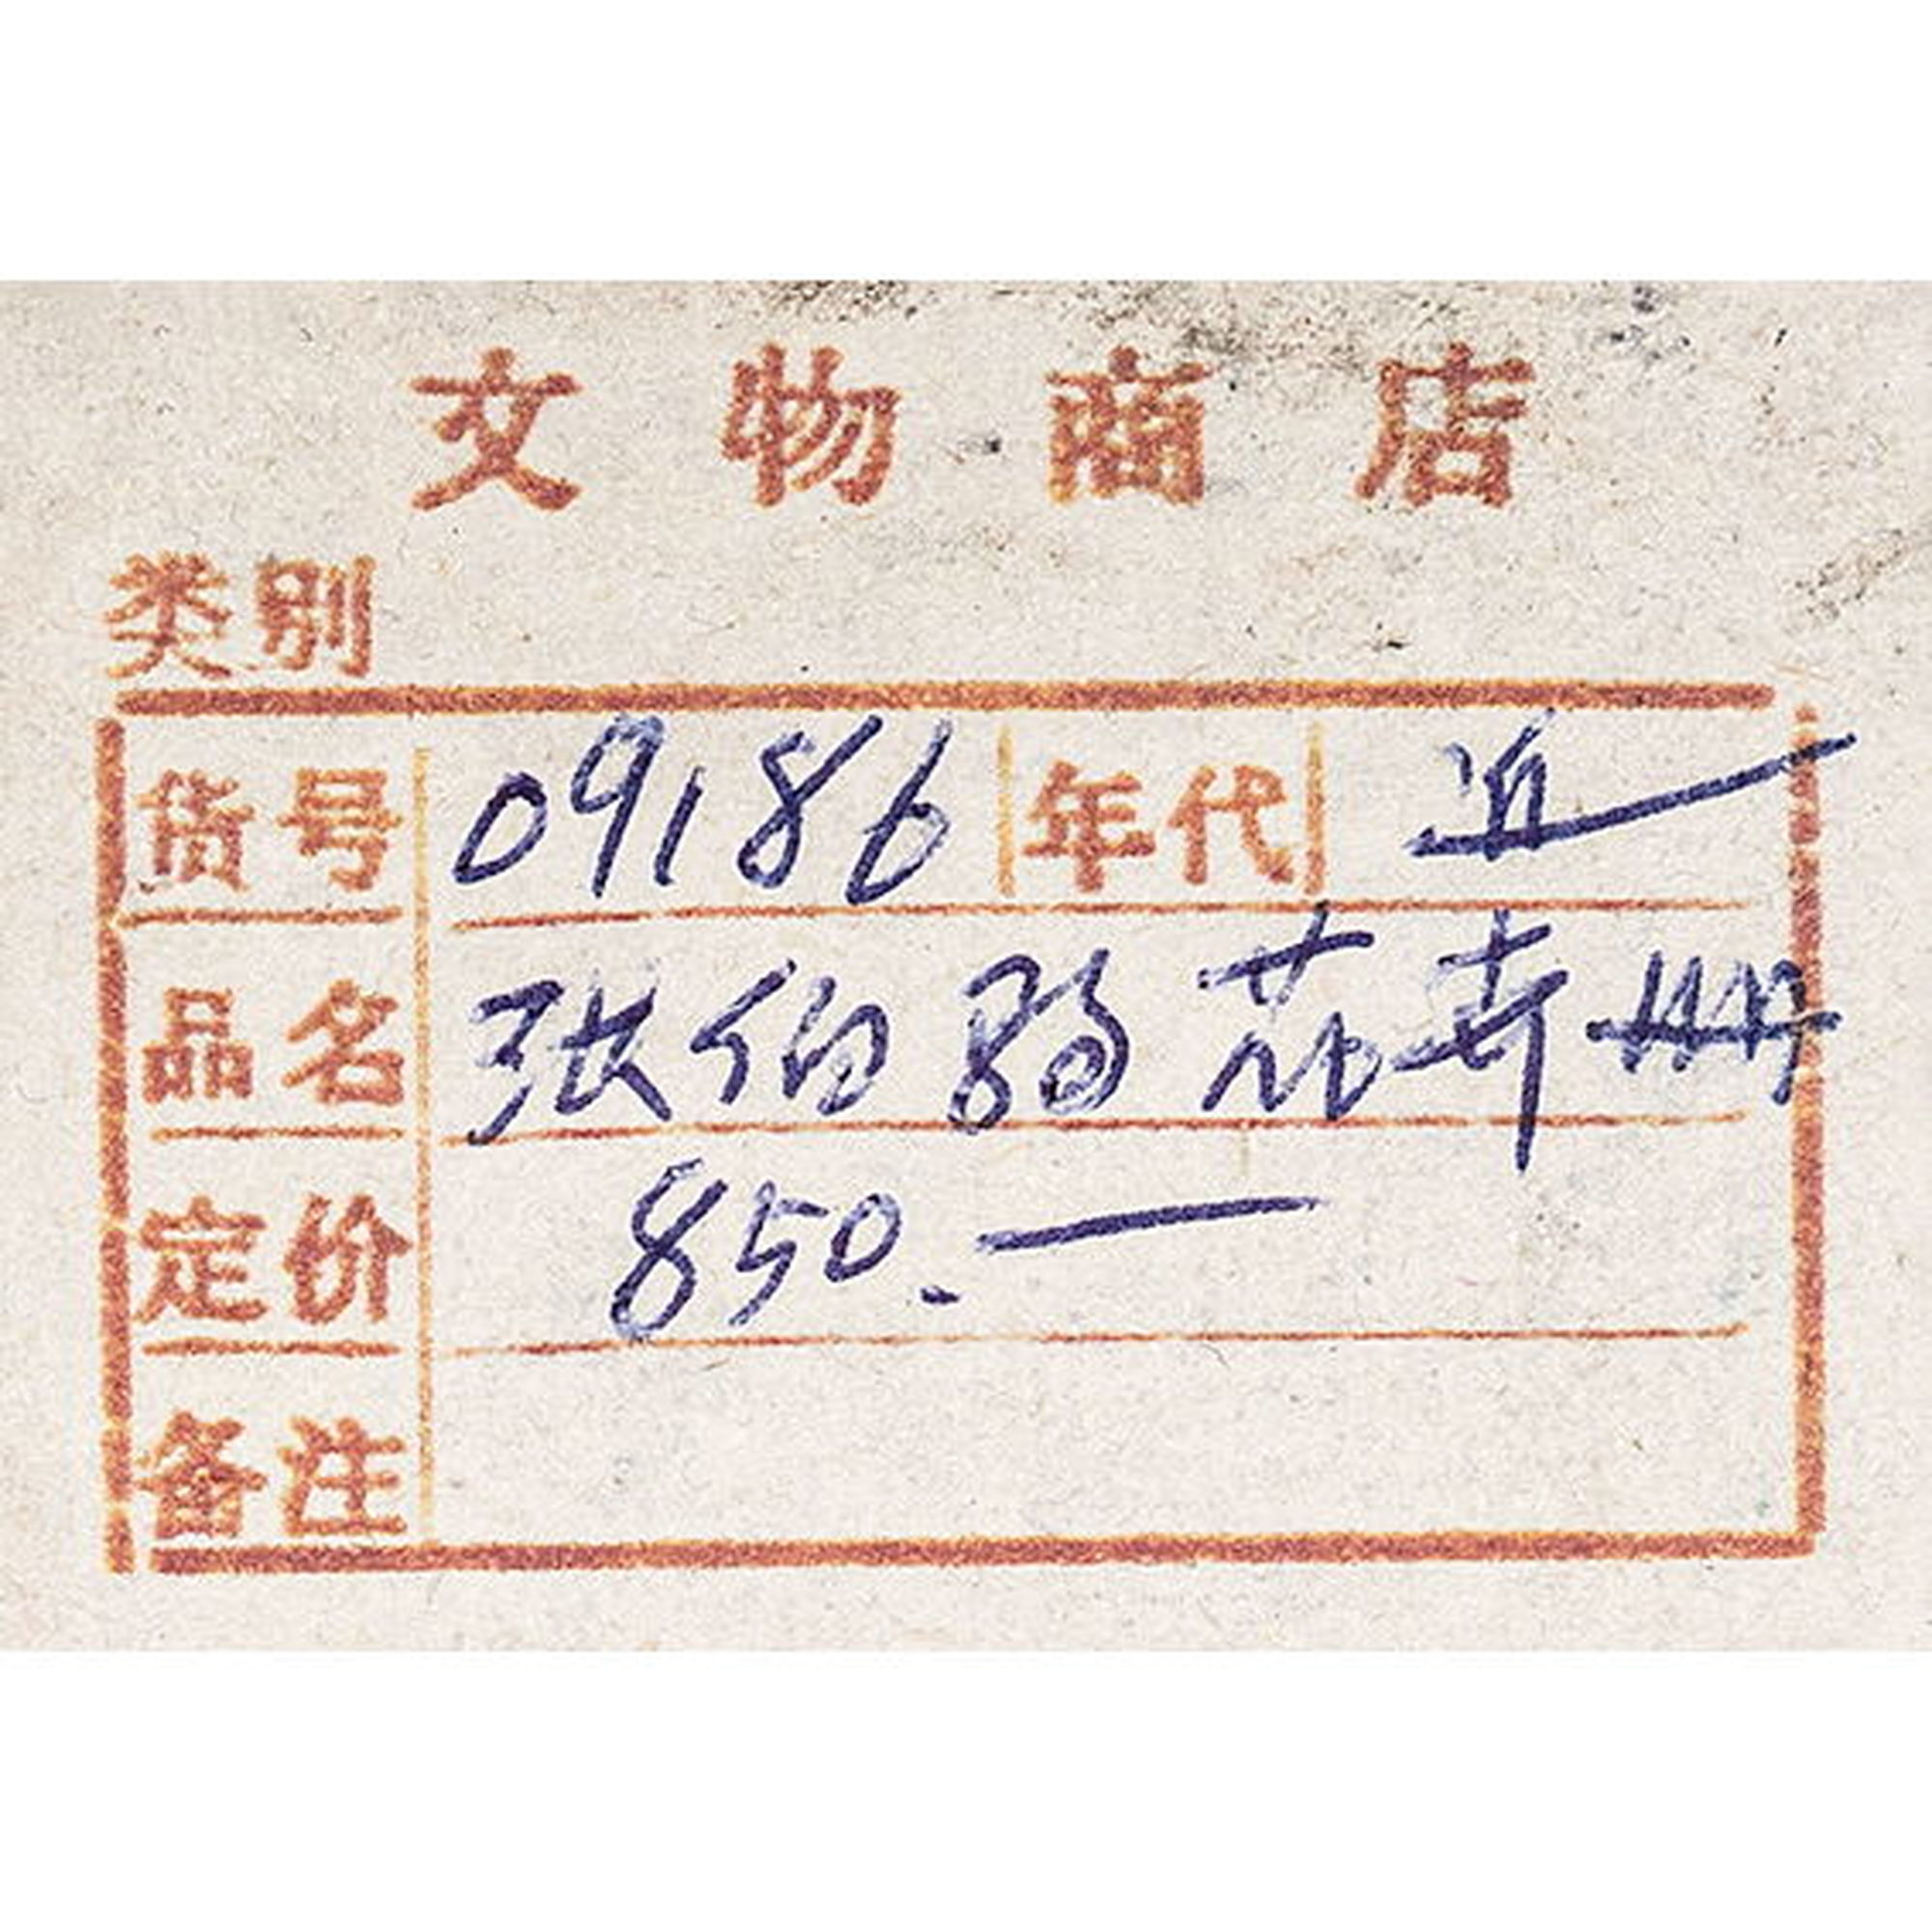 文物商店
类别
货号 09186 年代 近
品名 张伯驹 花卉 册
定价 850.—
备注